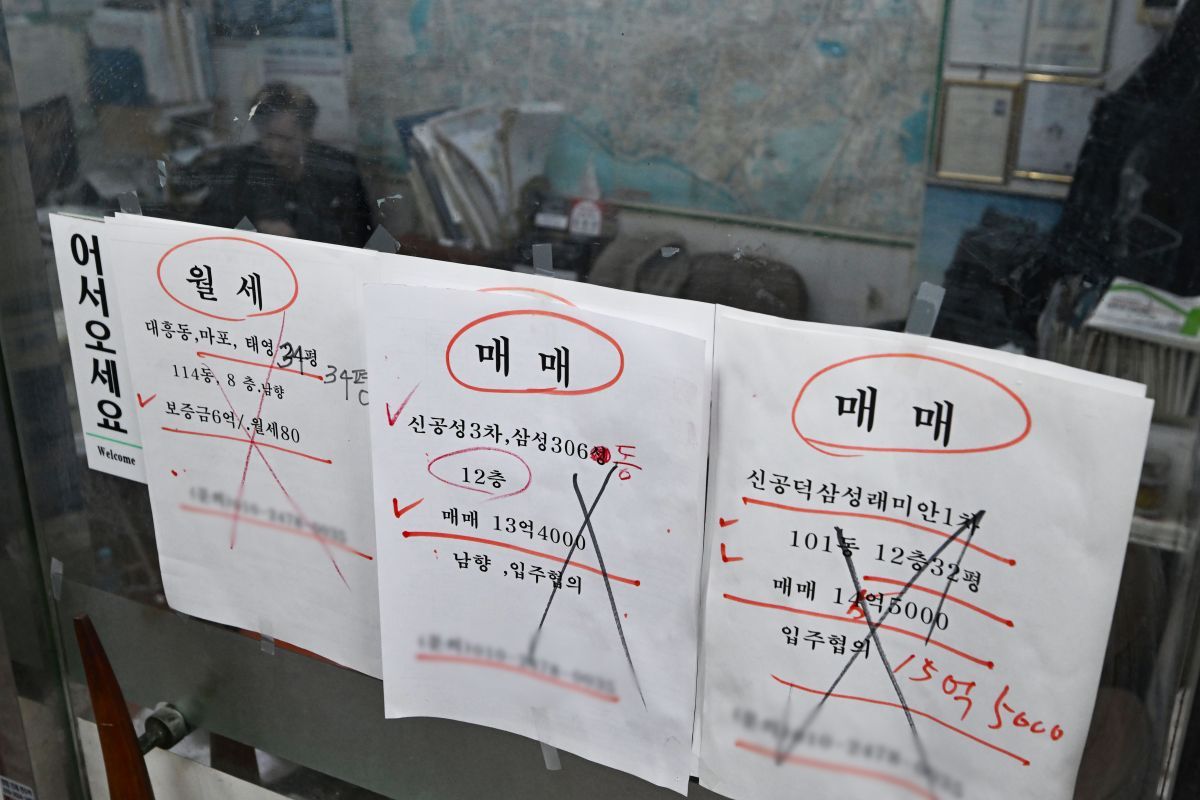 어서오세요
Welcome
월 세
대흥동,마포, 태영 34평
34평
114동, 8 층.남향
보증금6억/.월세80
매 매
신공성3차,삼성306성 동
12층
매매 13억4000
남향 ,입주협의
매 매
신공덕삼성래미안1차
101동 12층32평
매매 14억5000
5
입주협의
15억 5000